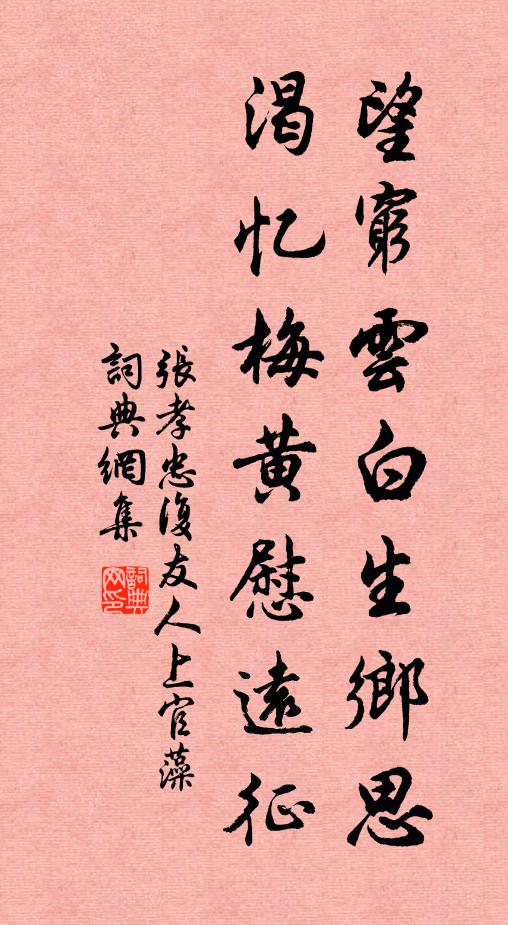 望窮雲白生鄉思
渴忆梅黄慰遠征
張孝忠復友人上官藻
詞典網集
詞典网印